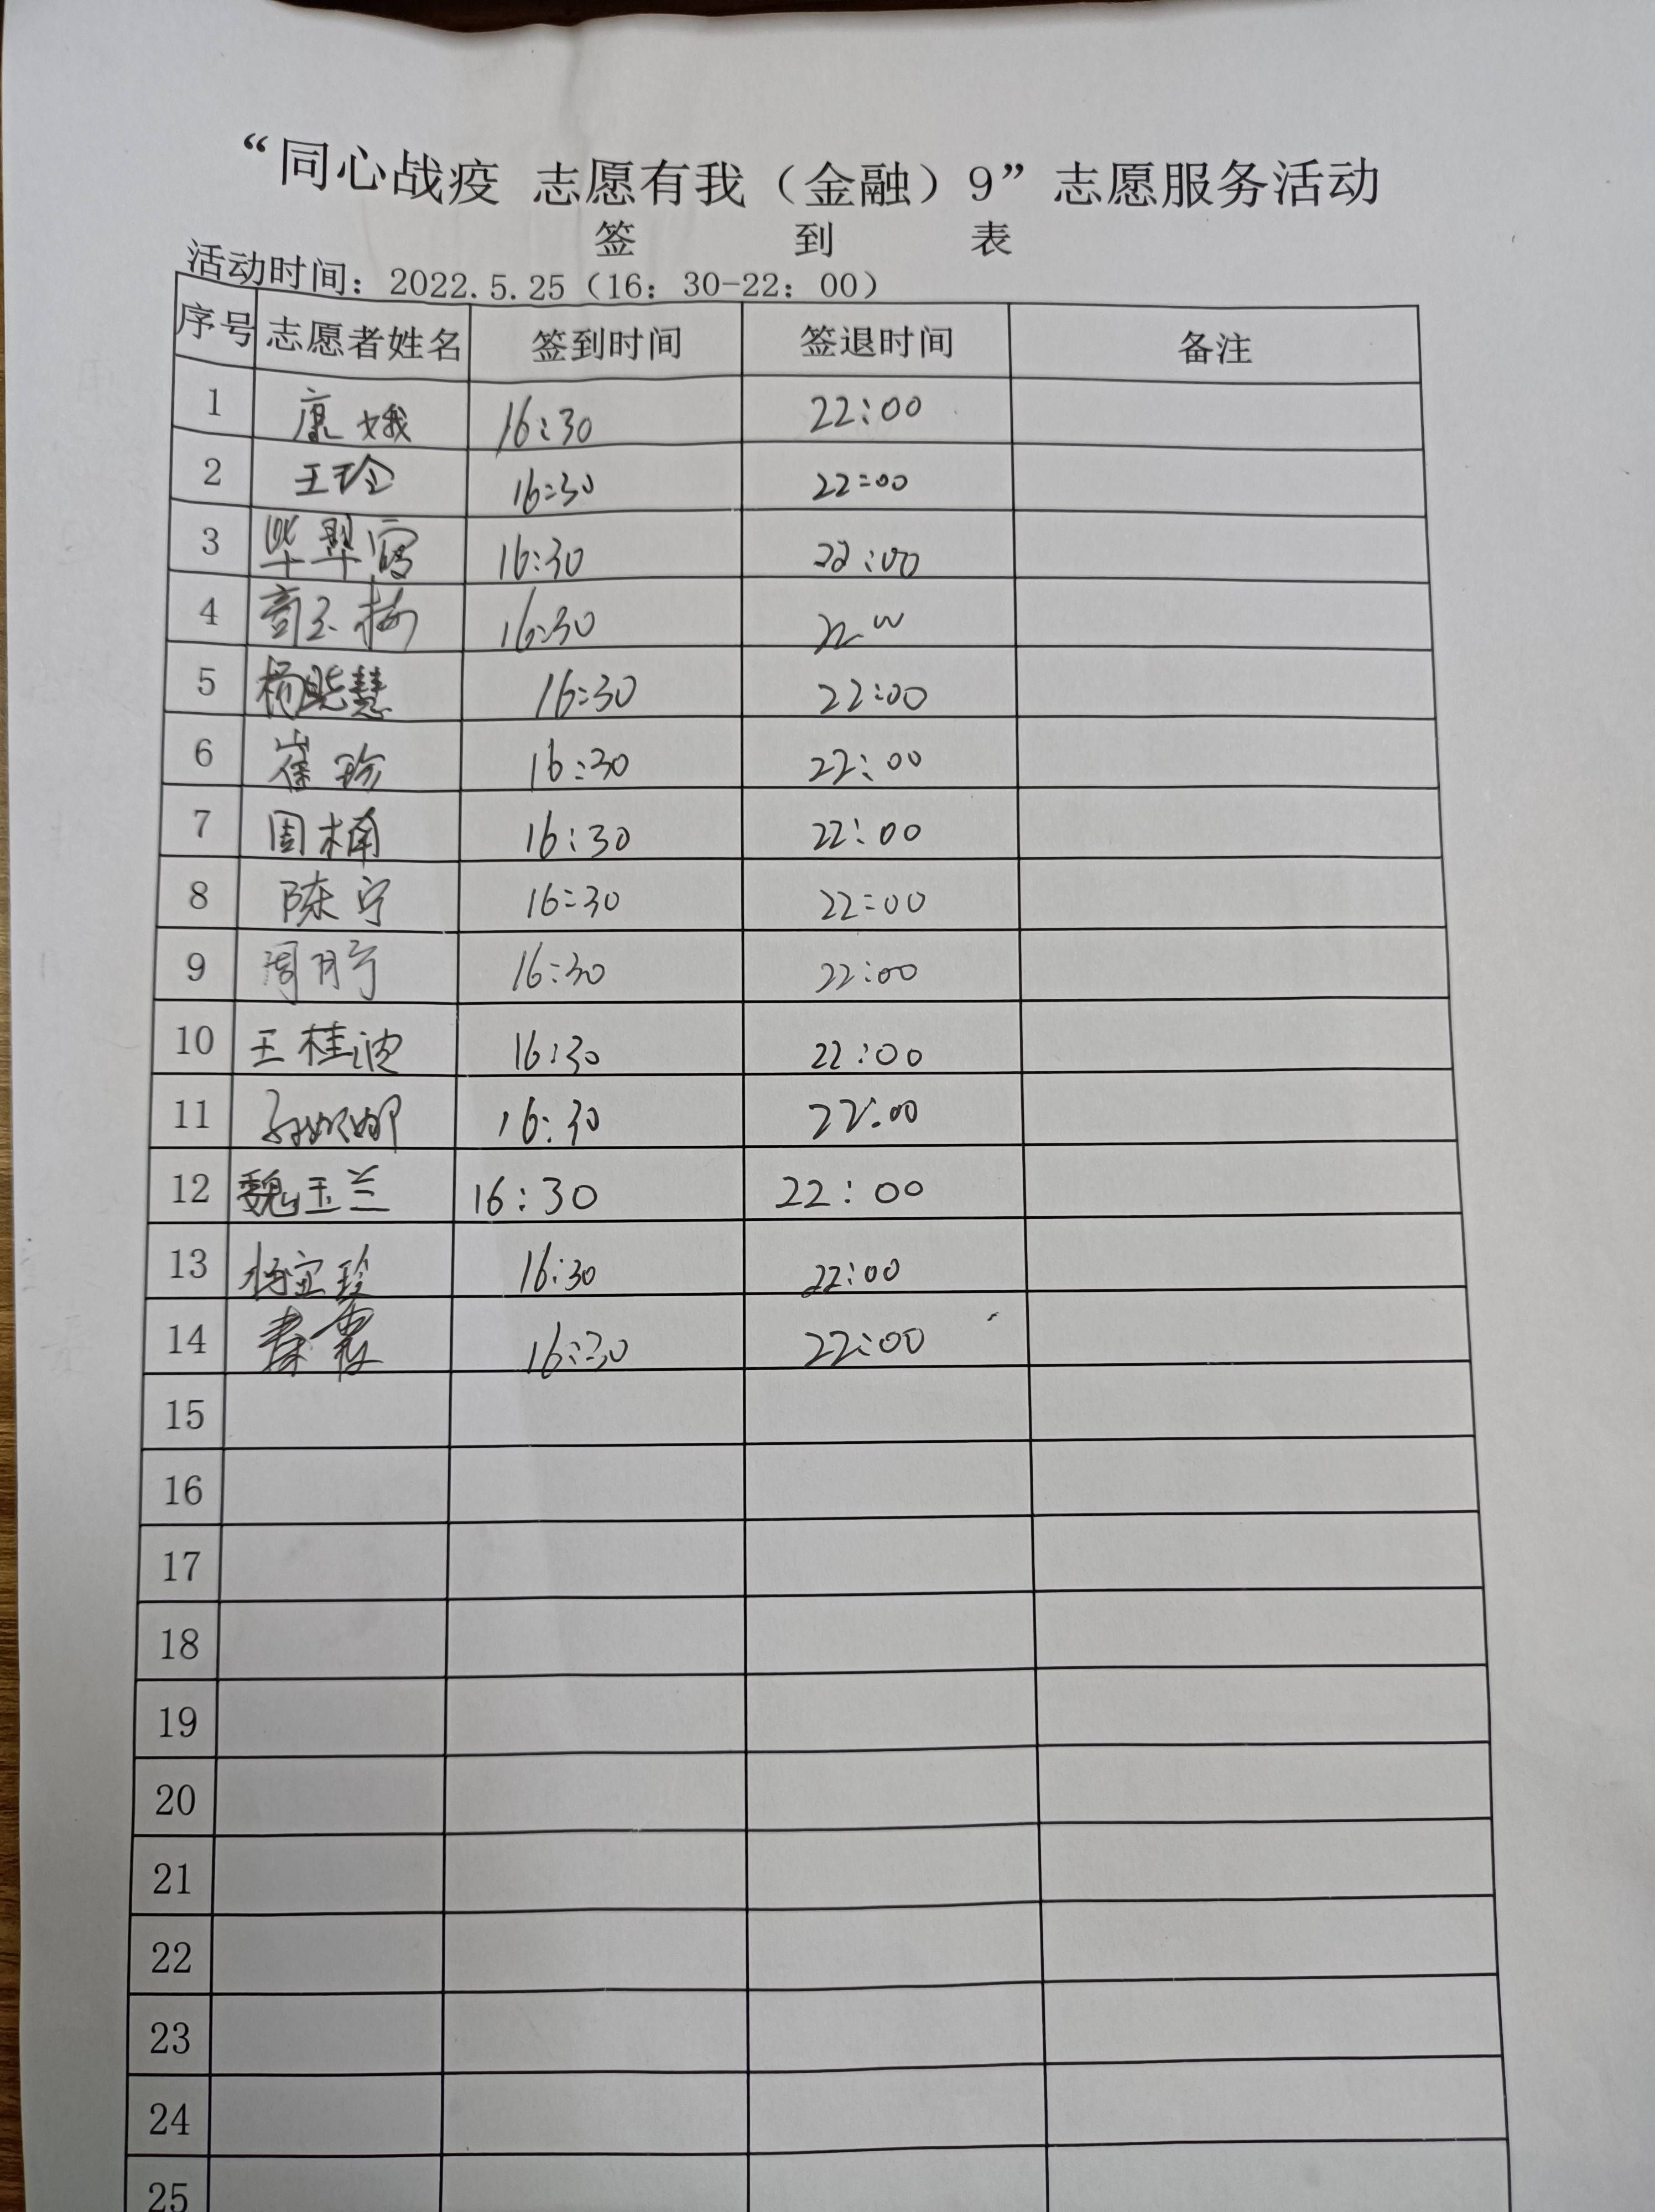 “同心战疫 志愿有我（金融）9”志愿服务活动
签 到 表
活动时间：2022.5.25（16：30-22：00）
序号 志愿者姓名 签到时间 签退时间 备注
1 康娥 16:30 22:00
2 王玲 16:30 22:00
3 毕翠 16:30 22:00
4 16:30 22:00
5 杨晓慧 16:30 22:00
6 崔珍 16:30 22:00
7 周楠 16:30 22:00
8 陈宁 16:30 22:00
9 周月宁 16:30 22:00
10 王桂波 16:30 22:00
11 孙娜娜 16:30 22:00
12 魏玉兰 16:30 22:00
13 杨宝玲 16:30 22:00
14 秦霞 16:30 22:00
15
16
17
18
19
20
21
22
23
24
25